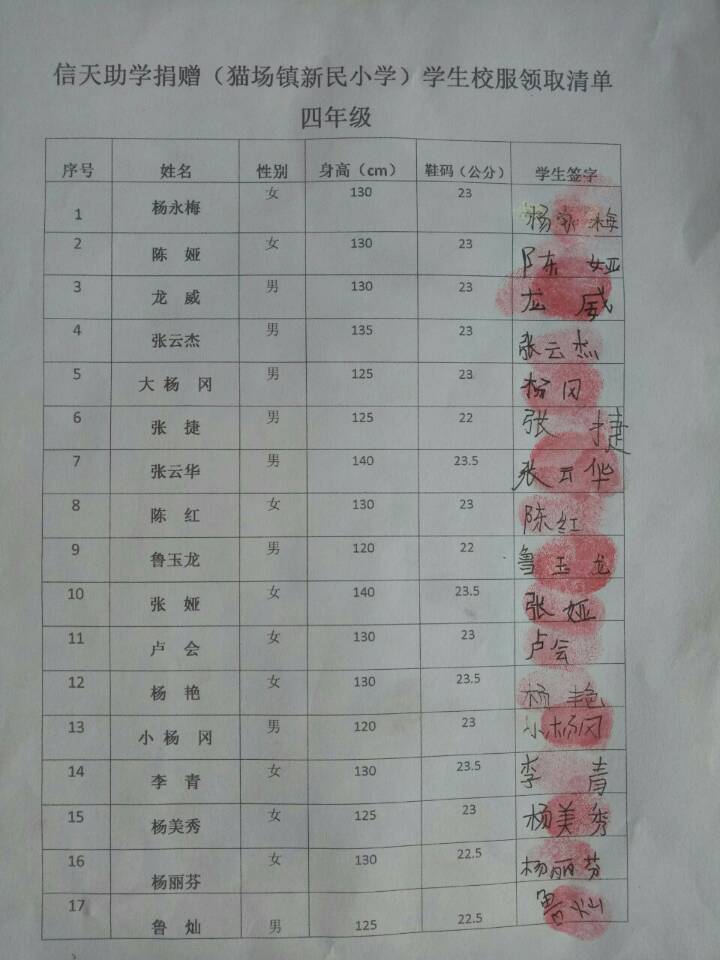 信天助学捐赠（猫场镇新民小学）学生校服领取清单
四年级
序号 姓名 性别 身高（cm） 鞋码（公分） 学生签字
1 杨永梅 女 130 23 杨永梅
2 陈 娅 女 130 23 陈 娅
3 龙 威 男 130 23 龙 威
4 张云杰 男 135 23 张云杰
5 大 杨 冈 男 125 23 杨冈
6 张 捷 男 125 22 张 捷
7 张云华 男 140 23.5 张云华
8 陈 红 女 130 23 陈红
9 鲁玉龙 男 120 22 鲁玉龙
10 张 娅 女 140 23.5 张 娅
11 卢 会 女 130 23 卢会
12 杨 艳 女 130 23.5 杨 艳
13 小 杨 冈 男 120 23 小杨冈
14 李 青 女 130 23.5 李 青
15 杨美秀 女 125 23 杨美秀
16 杨丽芬 女 130 22.5 杨丽芬
17 鲁 灿 男 125 22.5 鲁灿